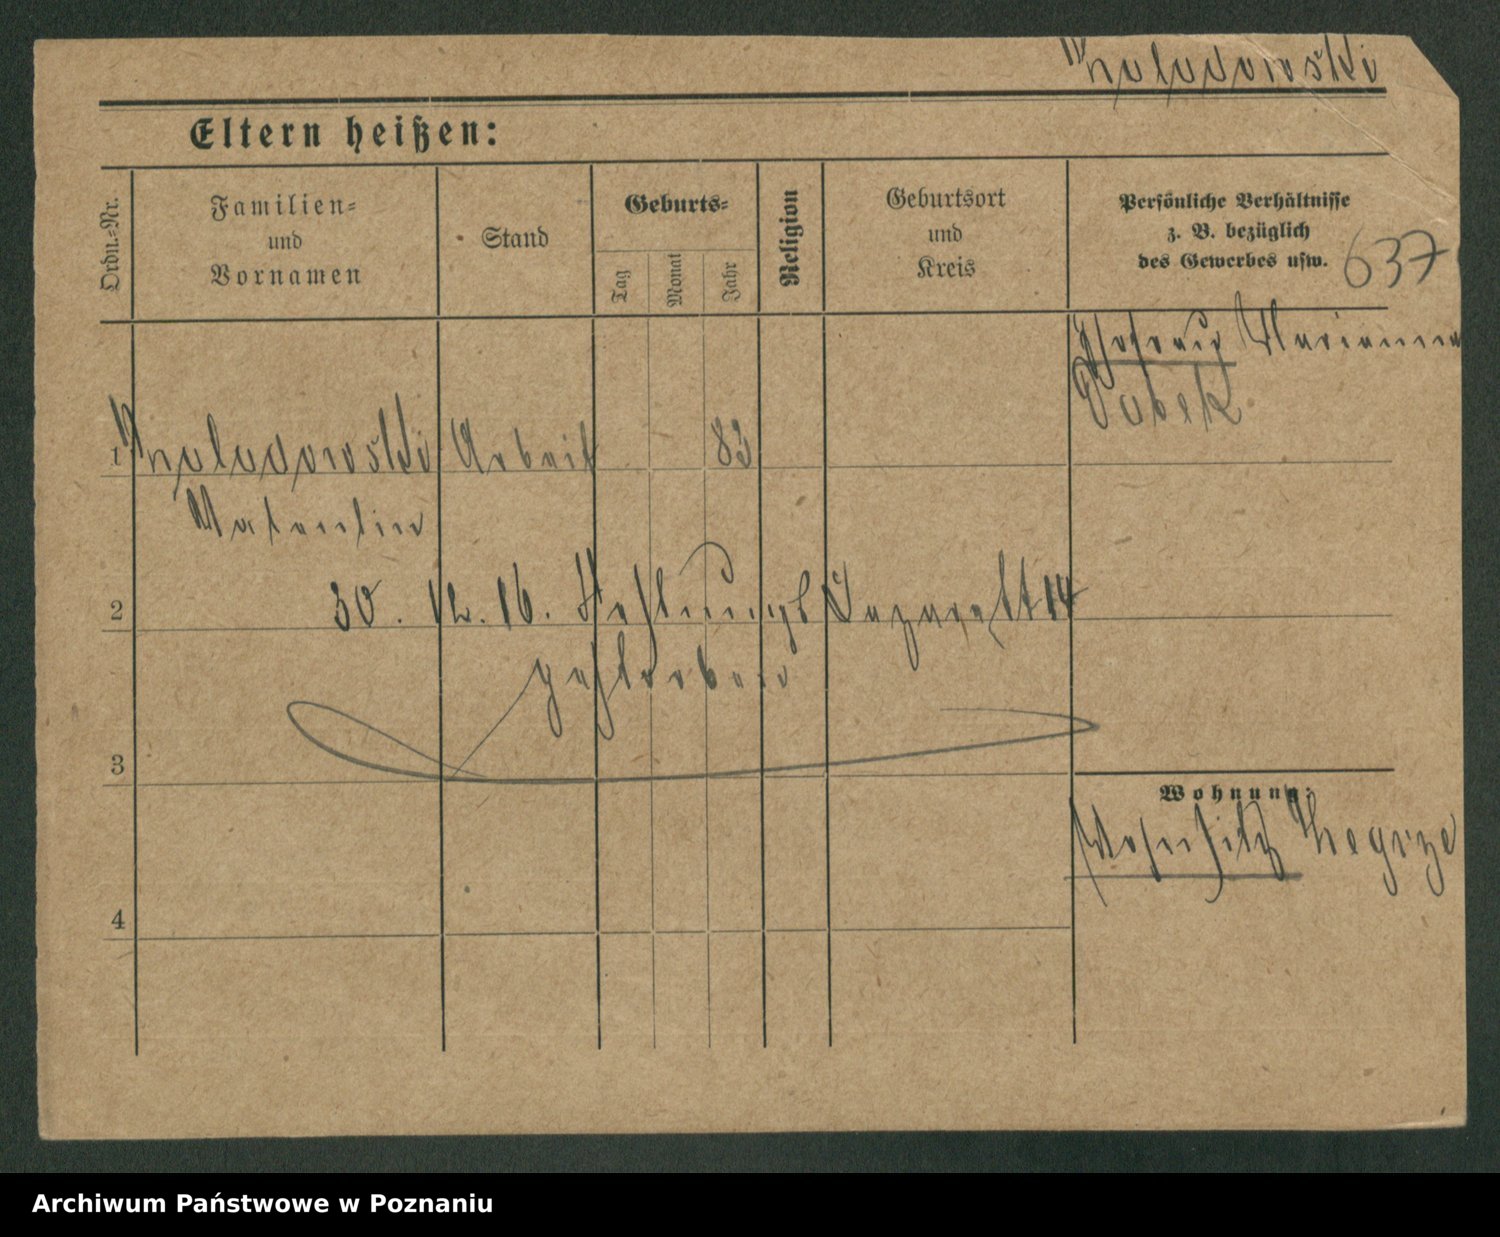 Eltern heißen:
Ordn.=Nr.
Familien=
und
Vornamen
Stand
Geburts=
Tag
Monat
Jahr
Religion
Geburtsort
und
Kreis
Persönliche Verhältnisse
z. B. bezüglich
des Gewerbes usw.
637
Ehefrau Marianna
1
Arbeit
83
Valentin
2
30. 12. 16. Festungs Lazarett 14
gestorben
3
Wohnung:
Wohnsitz Zegrze
4
Archiwum Państwowe w Poznaniu